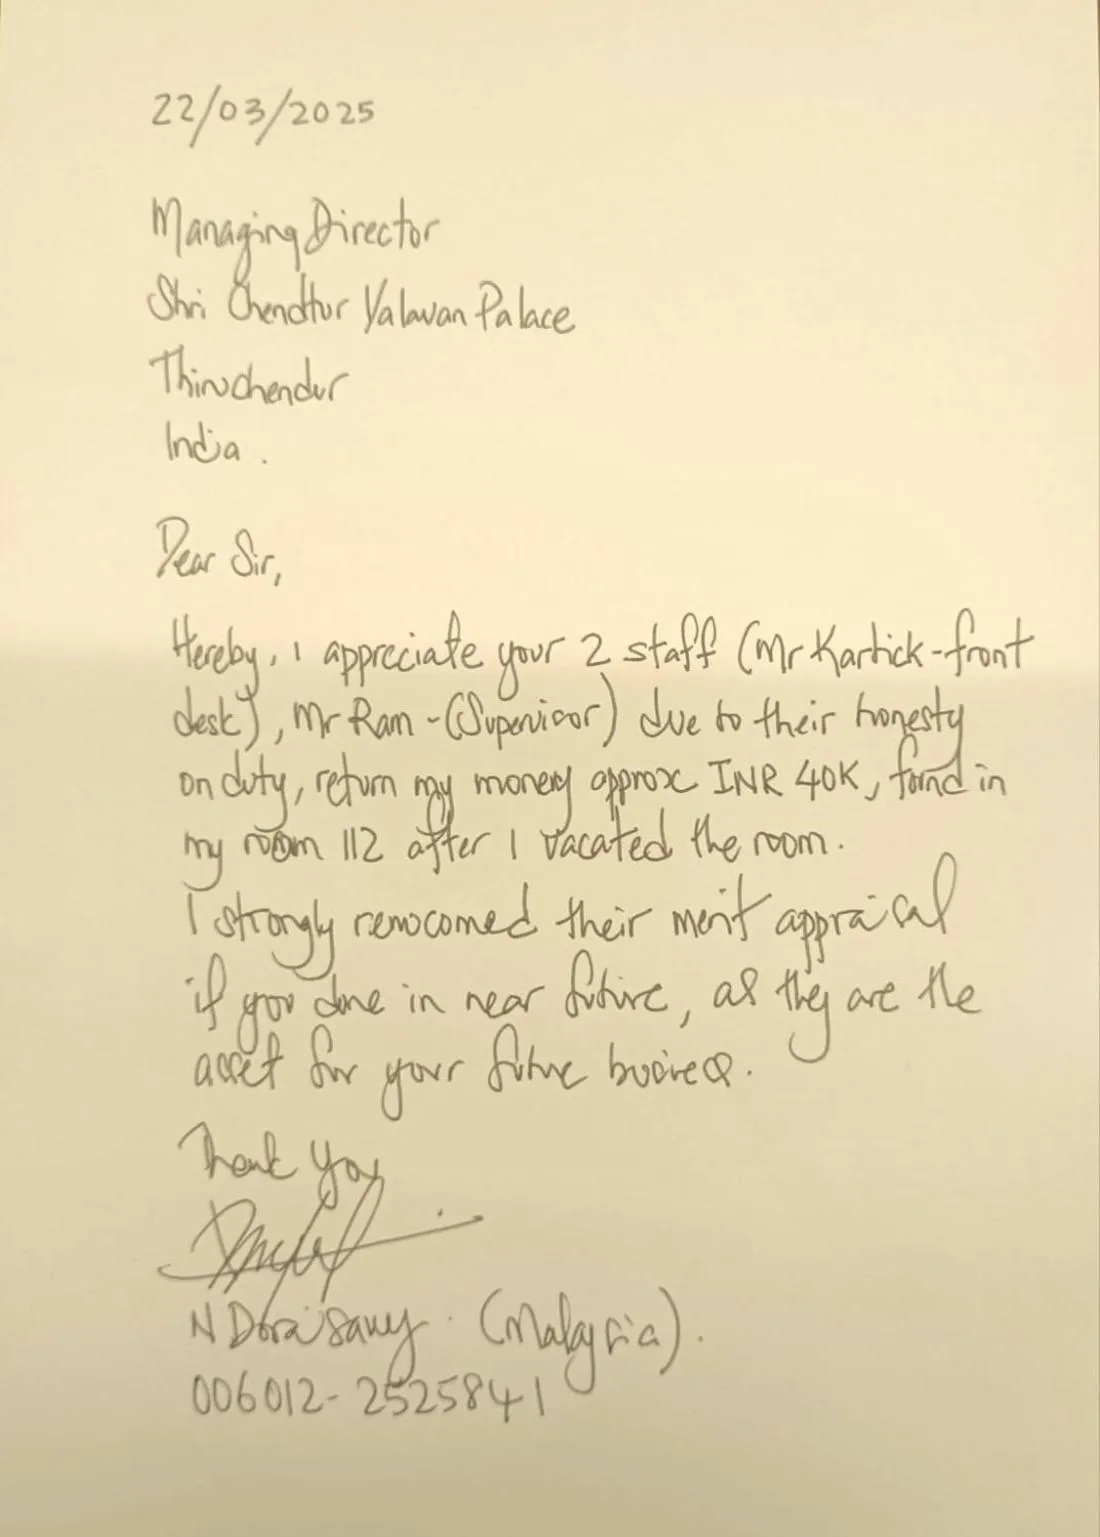 22/03/2025
Managing Director
Shri Chendhur Yalavan Palace
Thiruchendur
India.
Dear Sir,
Hereby, I appreciate your 2 staff (Mr Kartick-front
desk), Mr Ram-(Supervisor) due to their honesty
on duty, return my money approx INR 40K, found in
my room 112 after I vacated the room.
I strongly remocomed their merit appraisal
if you done in near future, as they are the
asset for your future business.
Thank You
N Doraisamy. (Malaysia).
006012-2525841